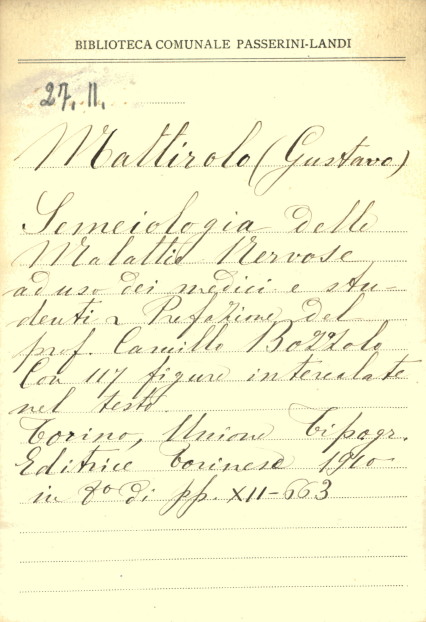 BIBLIOTECA COMUNALE PASSERINI-LANDI
27. II.
Mattirolo (Gustavo)
Semeiologia delle
Malattie Nervose
ad uso dei medici e stu-
denti - Prefazione del
prof. Camillo Bozzolo
Con 117 figure intercalate
nel testo.
Torino, Unione Tipogr.
Editrice Torinese 1910
in 8º di pp. XII-663